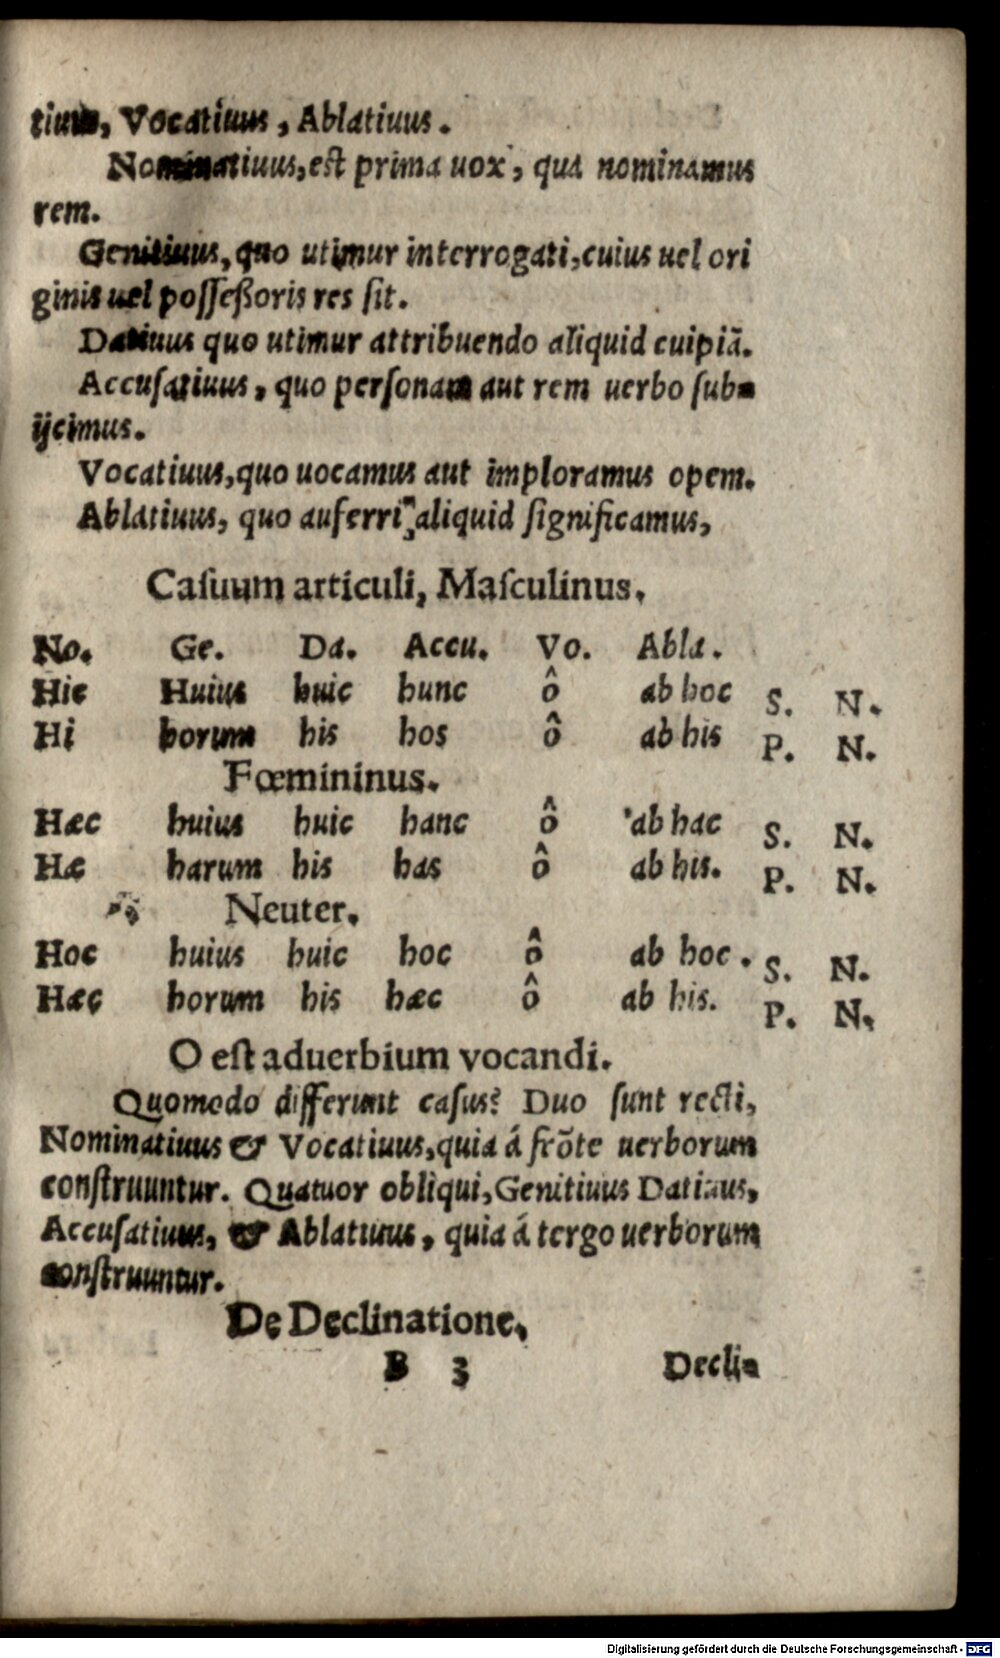 tiuus, Vocatiuus, Ablatiuus.
Nominatiuus, est prima uox, qua nominamus
rem.
Genitiuus, quo utimur interrogati, cuius uel ori
ginis uel possessoris res sit.
Datiuus quo utimur attribuendo aliquid cuipiã.
Accusatiuus, quo personam aut rem uerbo sub-
ijcimus.
Vocatiuus, quo uocamus aut imploramus opem.
Ablatiuus, quo auferri aliquid significamus,
Casuum articuli, Masculinus.
No. Ge. Da. Accu. Vo. Abla.
Hic Huius huic hunc ô ab hoc S. N.
Hi horum his hos ô ab his P. N.
Fœmininus.
Hæc huius huic hanc ô ab hac S. N.
Hæ harum his has ô ab his. P. N.
Neuter.
Hoc huius huic hoc ô ab hoc. S. N.
Hæc horum his hæc ô ab his. P. N.
O est aduerbium vocandi.
Quomodo differunt casus? Duo sunt recti,
Nominatiuus & Vocatiuus, quia á frõte uerborum
construuntur. Quatuor obliqui, Genitiuus Datiuus,
Accusatiuus, & Ablatiuus, quia á tergo uerborum
construuntur.
De Declinatione.
B 3 Decli-
Digitalisierung gefördert durch die Deutsche Forschungsgemeinschaft - DFG